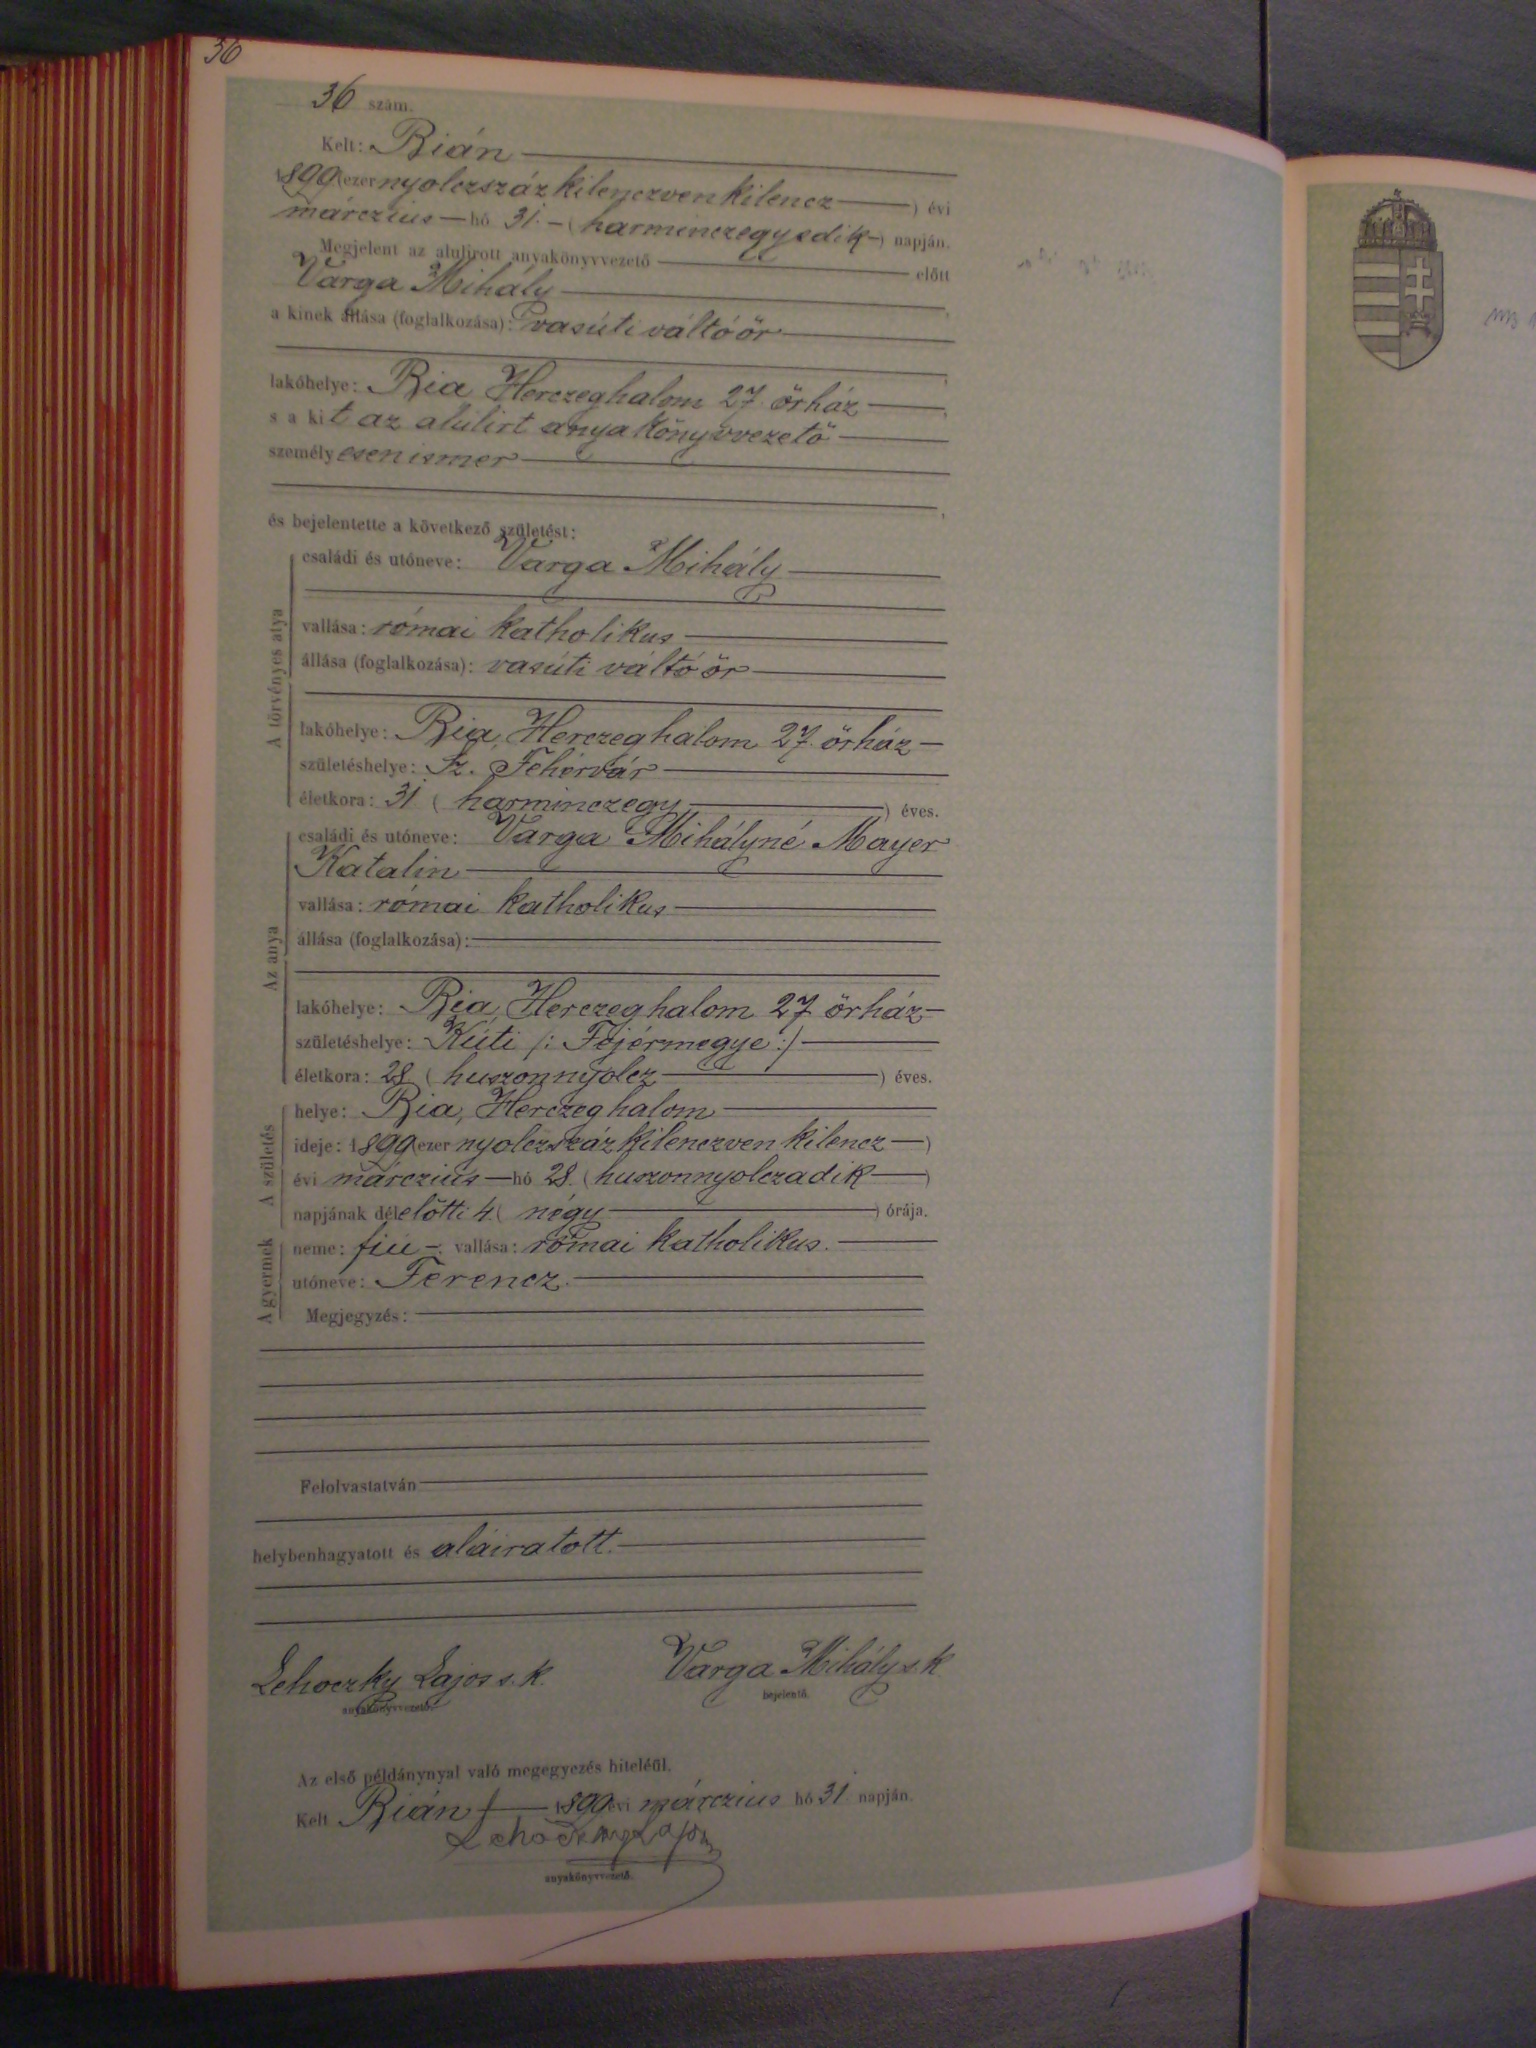 36
36 szám.
Kelt: Bián
1899 (ezer nyolczszáz kilenczven kilencz) évi
márczius hó 31. (harminczegyedik) napján.
Megjelent az alulirott anyakönyvvezető előtt
Varga Mihály
a kinek állása (foglalkozása): vasúti váltóőr
lakóhelye: Bia, Herczeghalom 27 őrház
s a kit az alulirt anyakönyvvezető
személyesen ismer
és bejelentette a következő születést:
A törvényes atya
családi és utóneve: Varga Mihály
vallása: római katholikus
állása (foglalkozása): vasúti váltó őr
lakóhelye: Bia, Herczeghalom 27. őrház
születéshelye: Sz. Fehérvár
életkora: 31 (harminczegy) éves.
Az anya
családi és utóneve: Varga Mihályné Mayer
Katalin
vallása: római katholikus
állása (foglalkozása):
lakóhelye: Bia, Herczeghalom 27 őrház
születéshelye: Kúti /: Fejérmegye :/
életkora: 28 (huszonnyolcz) éves.
A születés
helye: Bia, Herczeghalom
ideje: 1899 (ezer nyolczszáz kilenczven kilencz)
évi márczius hó 28. (huszonnyolczadik)
napjának délelőtti 4. (négy) órája.
A gyermek
neme: fiú -. vallása: római katholikus.
utóneve: Ferencz.
Megjegyzés:
Felolvastatván
helybenhagyatott és aláiratott.
Lehoczky Lajos s. k. Varga Mihály s. k.
anyakönyvvezető. bejelentő.
Az első példánynyal való megegyezés hiteléűl.
Kelt Bián 1899 évi márczius hó 31 napján.
Lehoczky Lajos
anyakönyvvezető.